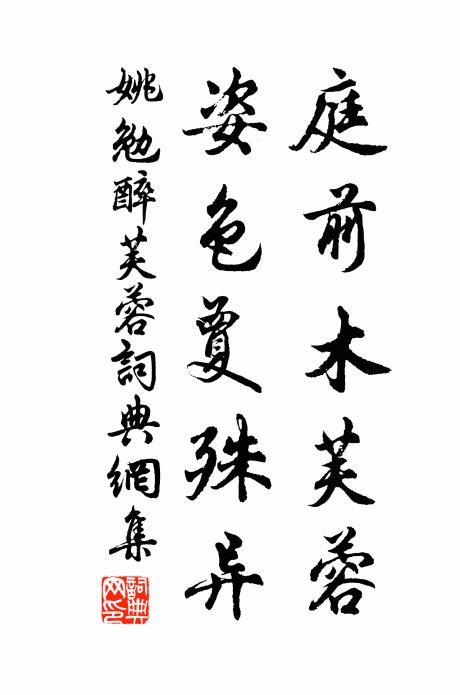 庭前木芙蓉
姿色夐殊异
姚勉醉芙蓉詞典網集
詞典网印